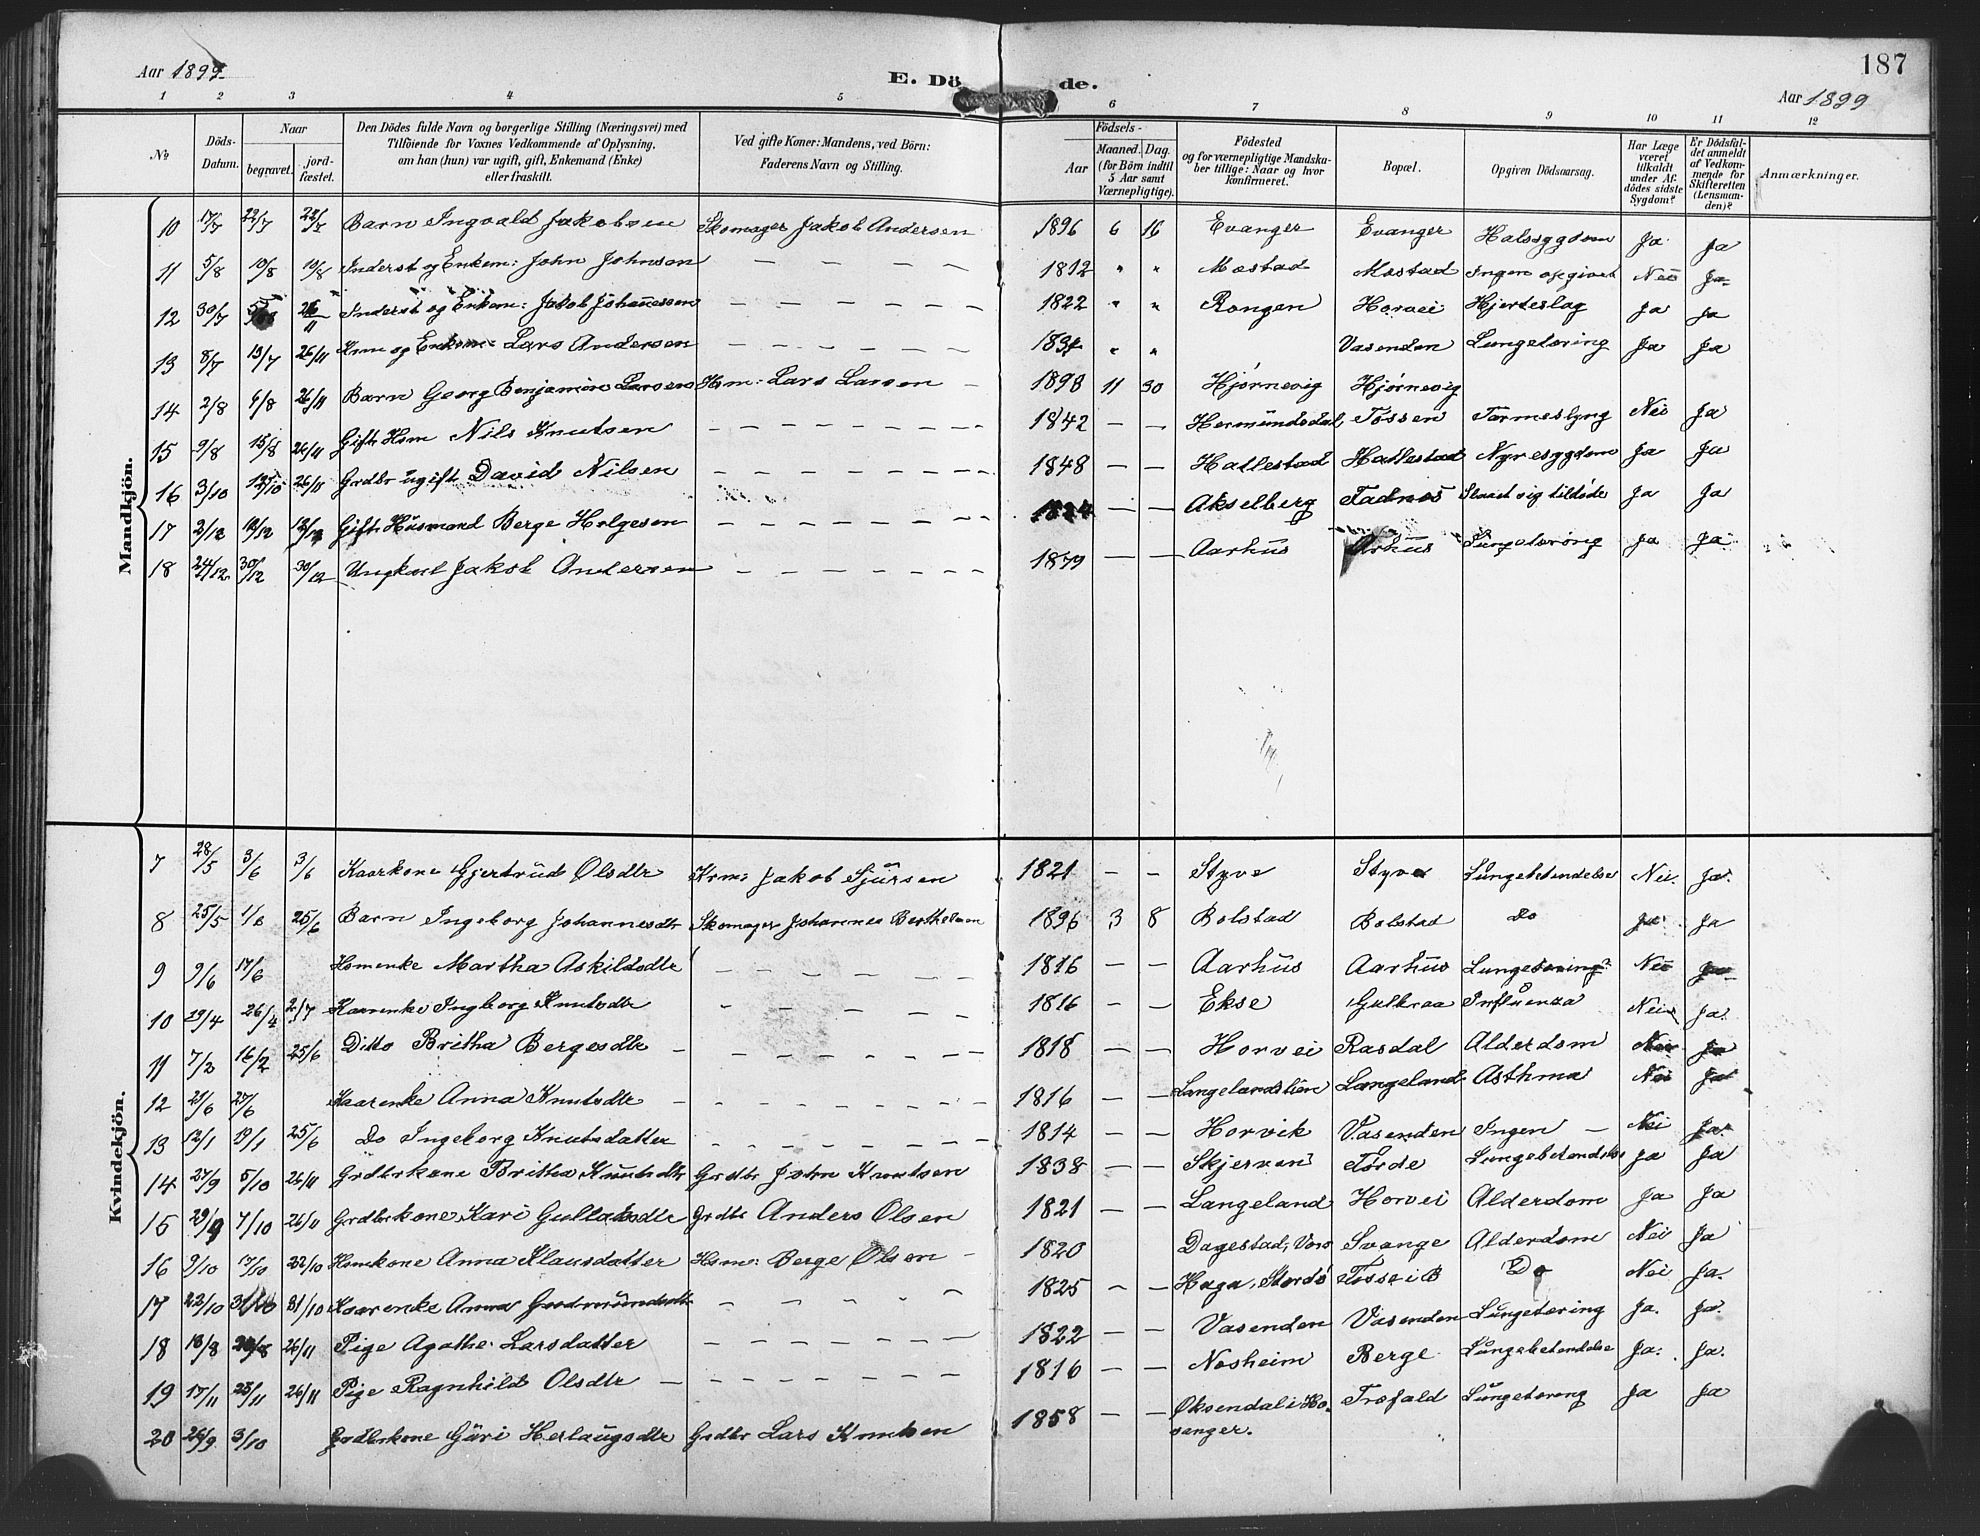 Aar 1899.
E. Dö
de.
187
Aar 1899
1 2 3 4 5 6 7 8 9 10 11 12
№
Döds-Datum.
Naar
begravet.
jord-fæstet.
Den Dödes fulde Navn og borgerlige Stilling (Næringsvei) med
Tilföiende for Voxnes Vedkommende af Oplysning,
om han (hun) var ugift, gift, Enkemand (Enke)
eller fraskilt.
Ved gifte Koner: Mandens, ved Börn:
Faderens Navn og Stilling.
Födsels-
Aar
Maaned. Dag.
(for Börn indtil
5 Aar samt
Værnepligtige).
Födested
og for værnepligtige Mandska-
ber tillige: Naar og hvor
konfirmeret.
Bopæl.
Opgiven Dödsaarsag.
Har Læge
været
tilkaldt
under Af-
dödes sidste
Sygdom?
Er Dödsfal-
det anmeldt
af Vedkom-
mende for
Skifteretten
(Lensman-
den)?
Anmærkninger.
Mandkjön.
10 17/7 22/7 22/7 Barn Ingvald Jakobsen Skomager Jakob Andersen 1896 6 16 Evanger Evanger Halssygdom Ja Ja
11 5/8 10/8 10/8 Inderst og Enkem: John Johnsen — — — — — 1812 " " Mostad Mostad Ingen opgivet Nei Ja
12 30/7 26/11 Inderst og Enkem: Jakob Johannessen — — — — — 1822 " " Rongen Horvei Hjerteslag Ja Ja
13 8/7 13/7 26/11 Lars Andersen — — — — — " " Vasenden Lungetæring Ja Ja
14 2/8 6/8 26/11 Barn Georg Benjamin Larsen Hsm: Lars Larsen — 1898 11 30 Hjørnevig Hjørnevig
15 9/8 15/8 26/11 Gift Hsm Nils Knutsen — — — — — 1842 — — Hermundsdal Fossen Tarmeslyng Nei Ja
16 3/10 26/11 Grdbr ugift David Nilsen — — — — — 1848 — — Hallestad Hallestad Nyresygdom Ja Ja
17 2/12 12/12 12/12 Gift Husmand Berge Helgesen — — — — — 1824 — — Akselberg Fadnes Slaaet sig tildøde Ja Ja
18 24/12 30/12 30/12 Ungkarl Jakob Andersen — — — — — 1879 — — Aarhus Arhus Lungetæring Ja Ja
Kvindekjön.
7 28/5 3/6 3/6 Kaarkone Gjertrud Olsdtr Krm: Jakob Sjursen 1821 — — Styve Styve Lungebetendelse Nei. Ja.
8 25/5 1/6 25/6 Barn Ingeborg Johannesdtr Skomager Johannes Berthelsen 1896 3 8 Bolstad Bolstad Do Ja Ja
9 9/6 17/6 Hsmenke Martha Askildsdtr — — — — — 1816 — — Aarhus Aarhus Lungetæring? Nei Ja
10 19/4 26/4 2/7 Kaarenke Ingborg Knutsdtr — — — — — 1816 — — Ekse Gulbraa Influenza Nei Ja.
11 7/2 16/2 25/6 Ditto Britha Bergesdtr — — — — — 1818 — — Horvei Rasdal Alderdom Nei Ja
12 Kaarenke Anna Knutsdtr — — — — — 1816 — — Langelandslien Langeland Asthma Nei Ja
13 12/1 19/1 25/6 Do Ingeborg Knutsdatter — — — — — 1814 — — Horvik Vasenden Ingen — Nei Ja.
14 27/9 5/10 26/11 Grdbrkone Britha Knutsdtr Grdbr John Knutsen 1838 — — Skjerven Førde Lungebetendelse Ja Ja
15 29/9 7/10 26/11 Grdbrkone Kari Gullaksdtr Grdbr Anders Olsen 1821 — — Langeland Horvei Alderdom Ja Ja
16 9/10 22/10 Hsmkone Anna Klausdatter Hsm: Berge Olsen — 1820 Dagestad, Voss Evange Alderdom Nei Ja
17 23/10 31/10 31/10 Kaarenke Anna Gudmundsdtr — — — — — 1825 — — Haga, Stordö Do Nei Ja.
18 18/8 26/11 Pige Agathe Larsdatter — — — — — 1822 — — Vasenden Vasenden Lungetæring Ja. Ja.
19 17/11 25/11 26/11 Pige Ragnhild Olsdtr — — — — — 1816 — — Nesheim Berge Lungebetendelse Ja. Ja.
20 26/9 3/10 Grdbrkone Guri Herlaugsdtr Grdbr Lars Knutsen 1858 — — Øksendal i Ho-
sanger. Træfald Lungetæring Ja Ja